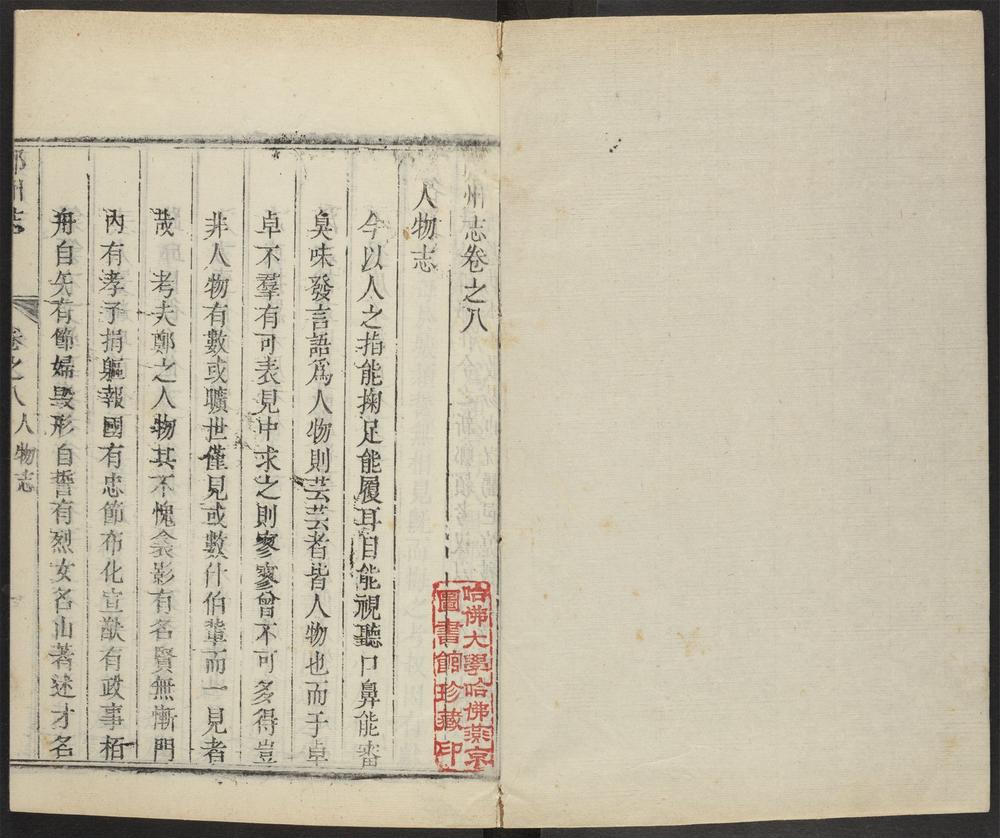 州志卷之八
人物志
今以人之指能掬足能履耳目能視聽口鼻能審
臭味發言語爲人物則芸芸者皆人物也而于卓
卓不羣有可表見中求之則寥寥曾不可多得豈
非人物有數或曠世僅見或數什伯輩而一見者
哉 考夫鄭之人物其不愧衾影有名賢無慚門
內有孝子捐軀報國有忠節布化宣猷有政事栢
舟自矢有節婦毁形自誓有烈女名山著述才名
州志 卷之八 人物志
哈佛大學哈佛燕京
圖書館珍藏印